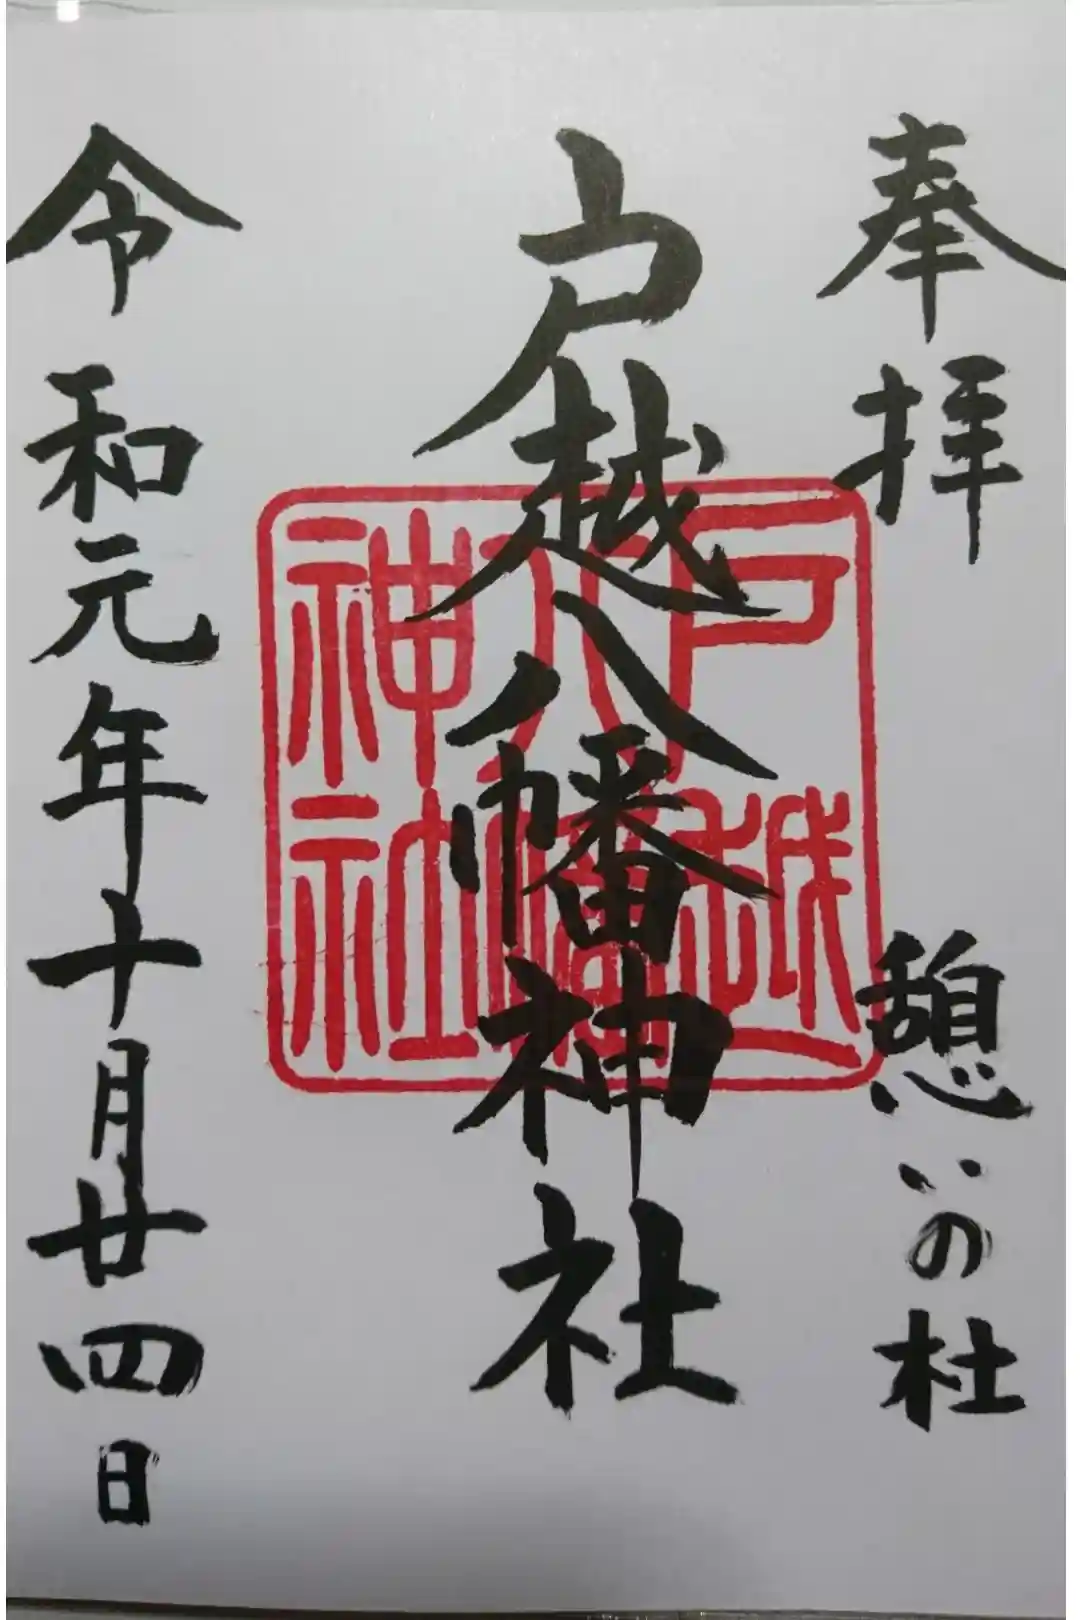 奉拝 憩いの杜
戸越八幡神社
令和元年十月廿四日
戸越
八幡
神社